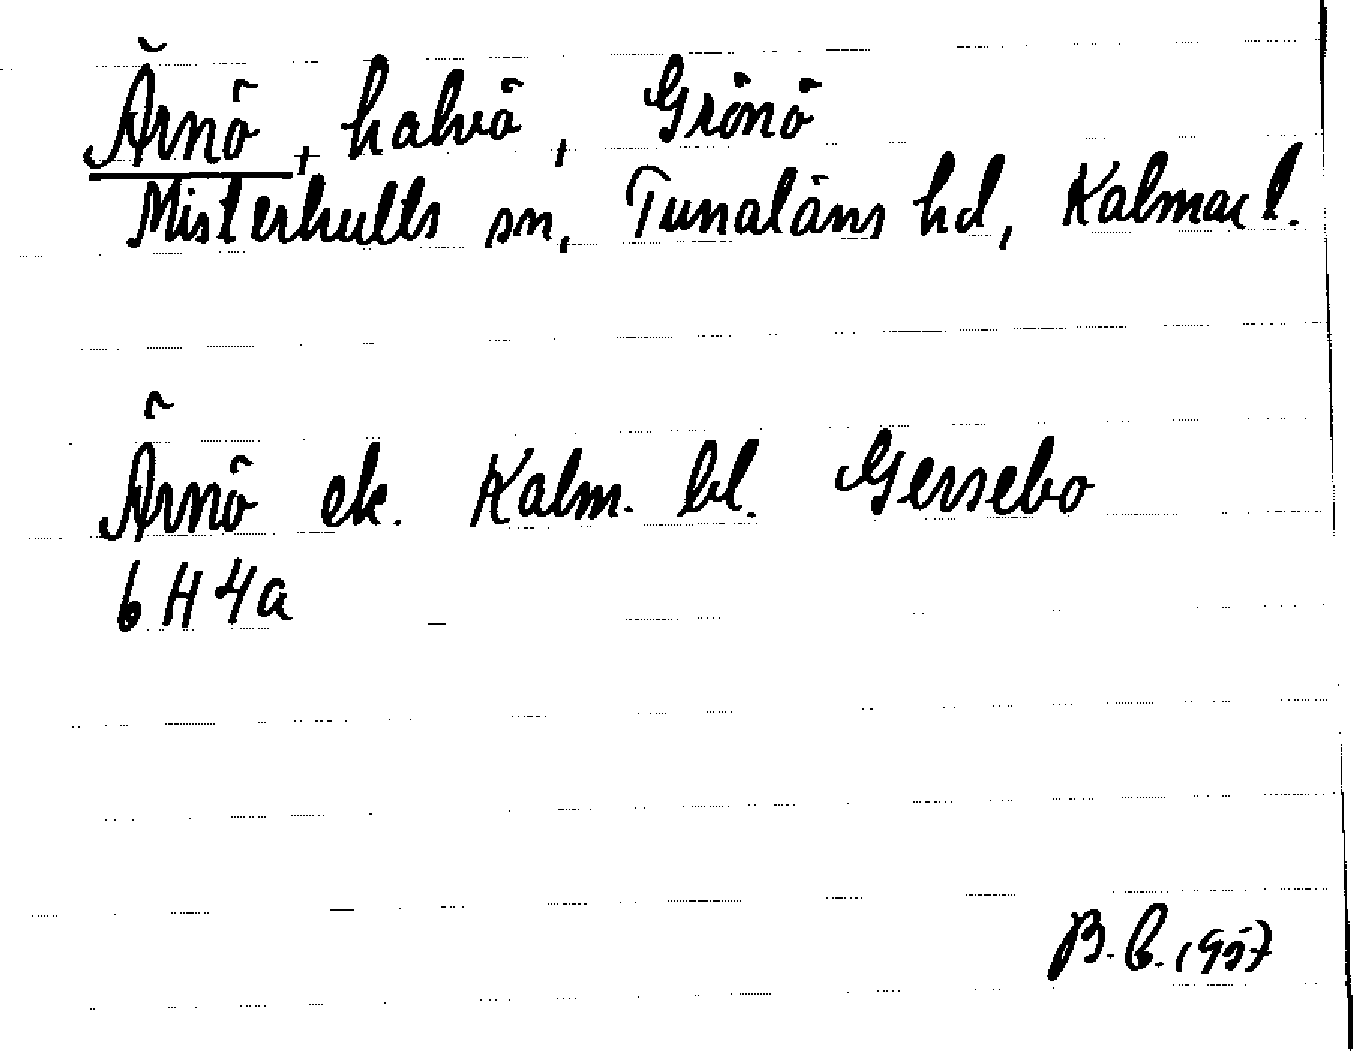 Ärnö, halvö, Grönö
Misterhults sn, Tunaläns hd, Kalmar l.
Ärnö ek. Kalm. bl. Gersebo
6H4a
B.E. 1957